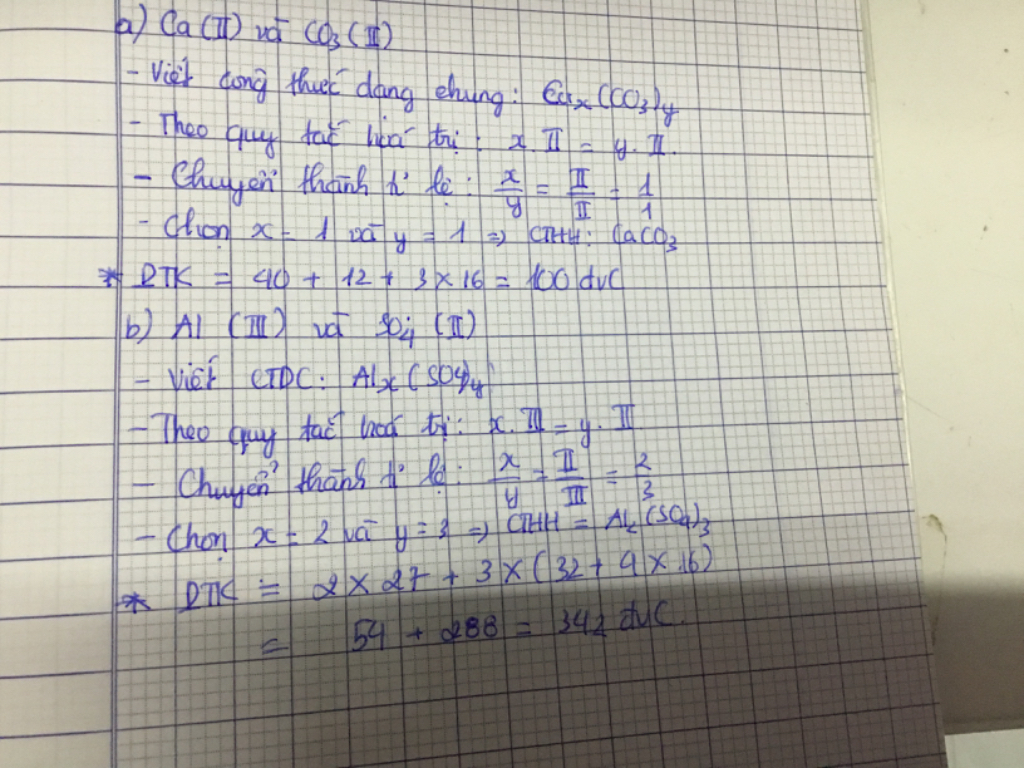 a) Ca (II) và CO₃ (II)
- Viết công thức dạng chung: Caₓ(CO₃)y
- Theo quy tắc hoá trị: x. II = y. II.
- Chuyển thành tỉ lệ: x/y = II/II = 1/1
- Chọn x = 1 và y = 1 => CTHH: CaCO₃
* PTK = 40 + 12 + 3 x 16 = 100 đvC
b) Al (III) và SO₄ (II)
- Viết CTDC: Alₓ(SO₄)y
- Theo quy tắc hoá trị: x. III = y. II
- Chuyển thành tỉ lệ: x/y = II/III = 2/3
- Chọn x = 2 và y = 3 => CTHH = Al₂(SO₄)₃
* PTK = 2 x 27 + 3 x (32 + 4 x 16)
= 54 + 288 = 342 đvC.